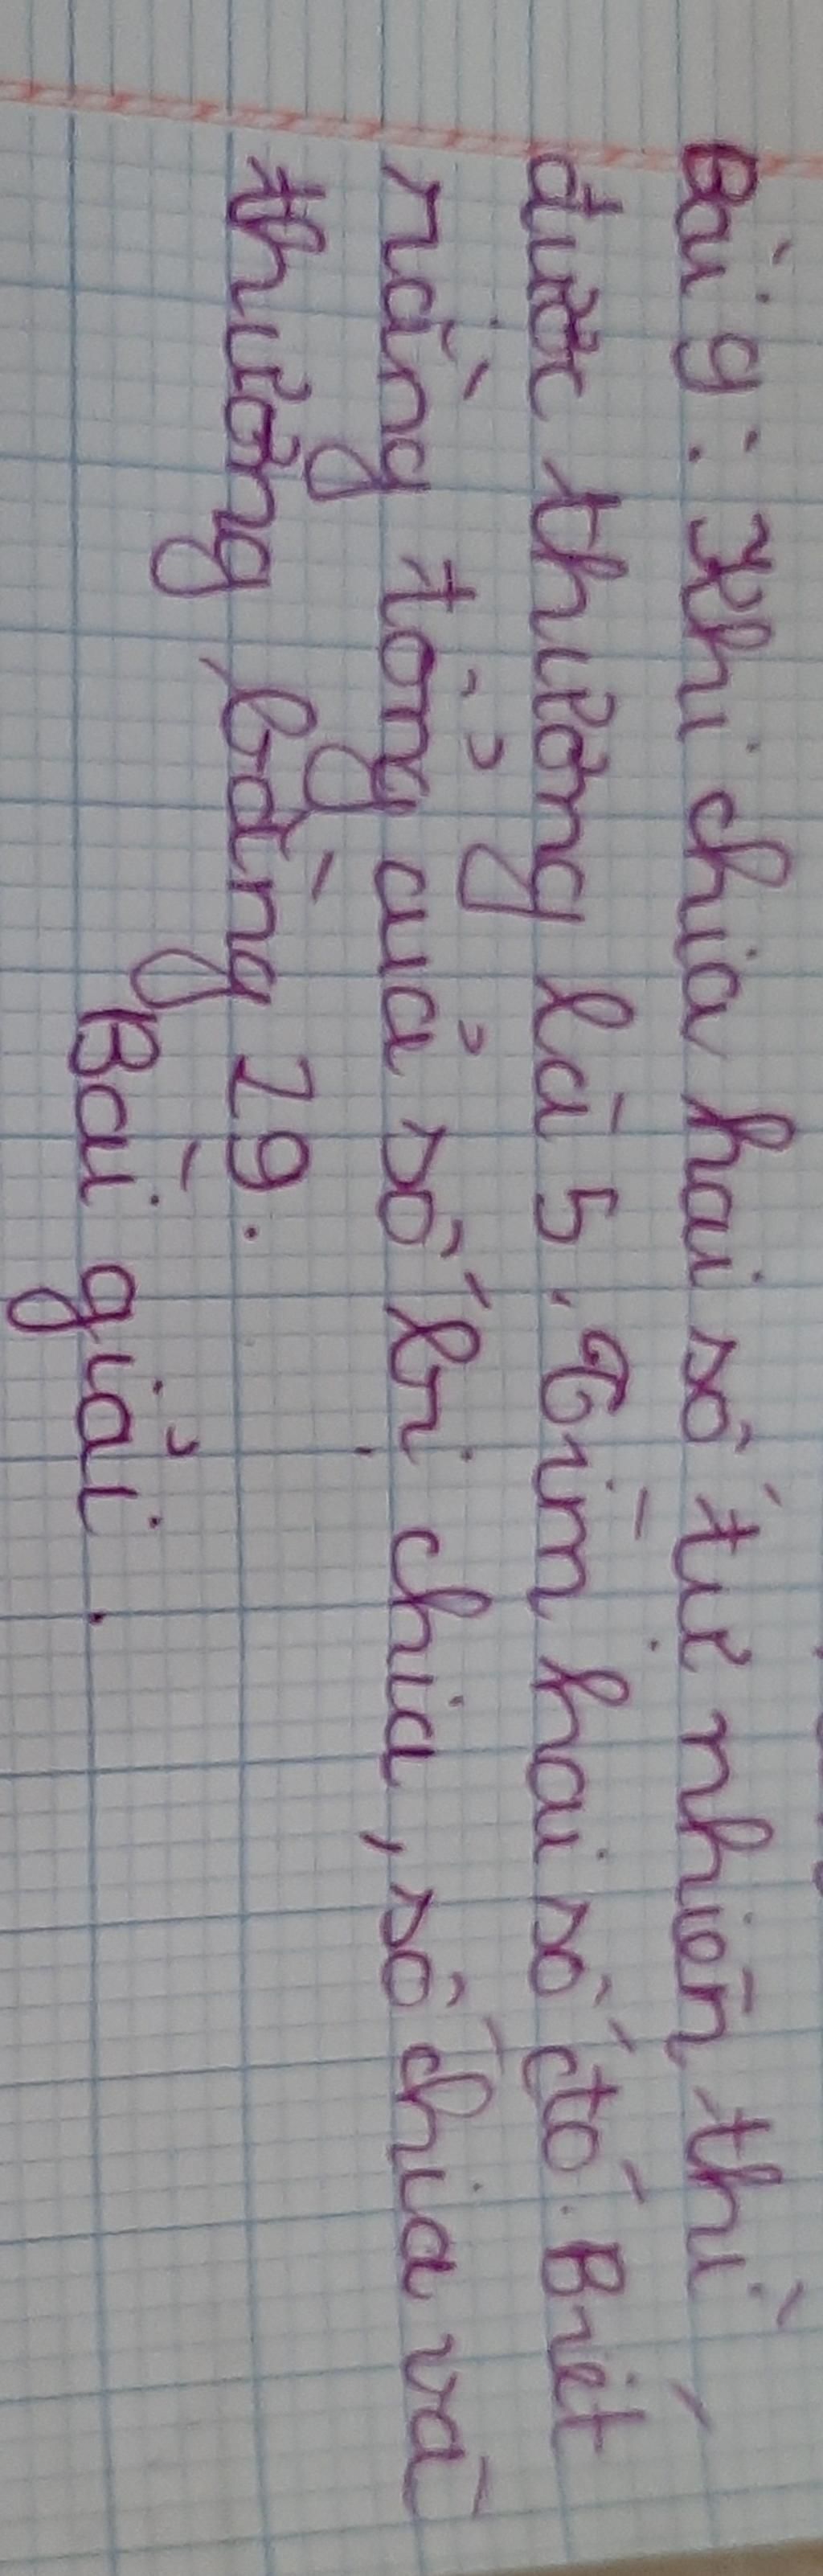 Bài 9: Khi chia hai số tự nhiên thì
được thương là 5. Tìm hai số đó. Biết
rằng tổng của số bị chia, số chia và
thương bằng 29.
Bài giải.